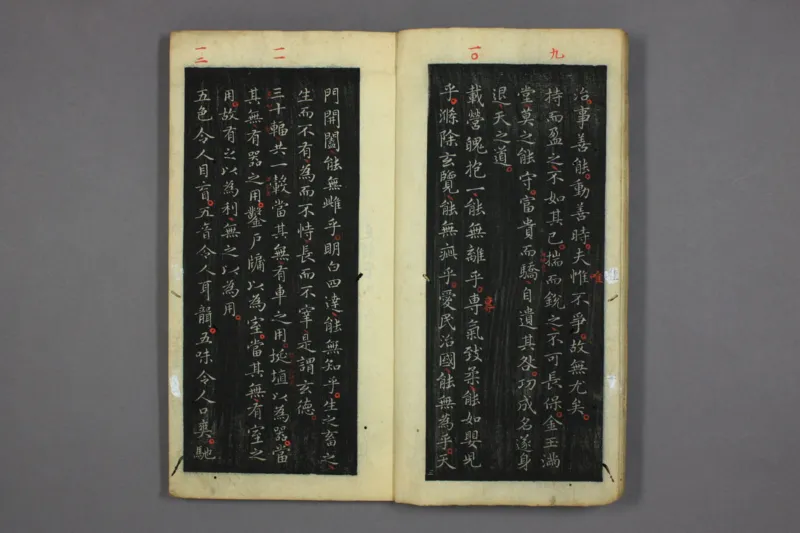 九
治事善能動善時夫惟不爭故無尤矣
持而盈之不如其已揣而銳之不可長保金玉滿
堂莫之能守富貴而驕自遺其咎功成名遂身
退天之道
一〇
載營魄抱一能無離乎專氣致柔能如嬰兒
乎滌除玄覽能無疵乎愛民治國能無為乎天
門開闔能無雌乎明白四達能無知乎生之畜之
生而不有為而不恃長而不宰是謂玄德
一一
三十輻共一轂當其無有車之用埏埴以為器當
其無有器之用鑿戶牖以為室當其無有室之
用故有之以為利無之以為用
一二
五色令人目盲五音令人耳聾五味令人口爽馳